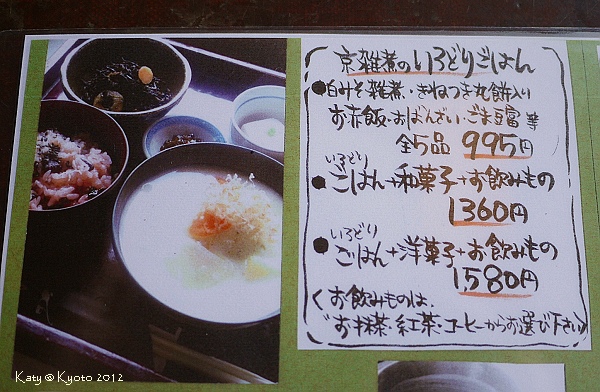 京雑煮のいろどりごはん
●白みそ雑煮・きねつき丸餅入り
お赤飯・おばんざい・ごま豆富 等
全5品 995円
いろどり
●ごはん+和菓子+お飲みもの
1360円
いろどり
●ごはん+洋菓子+お飲みもの
1,580円
お飲みものは、
お抹茶・紅茶・コーヒーからお選び下さい
Katy @ Kyoto 2012